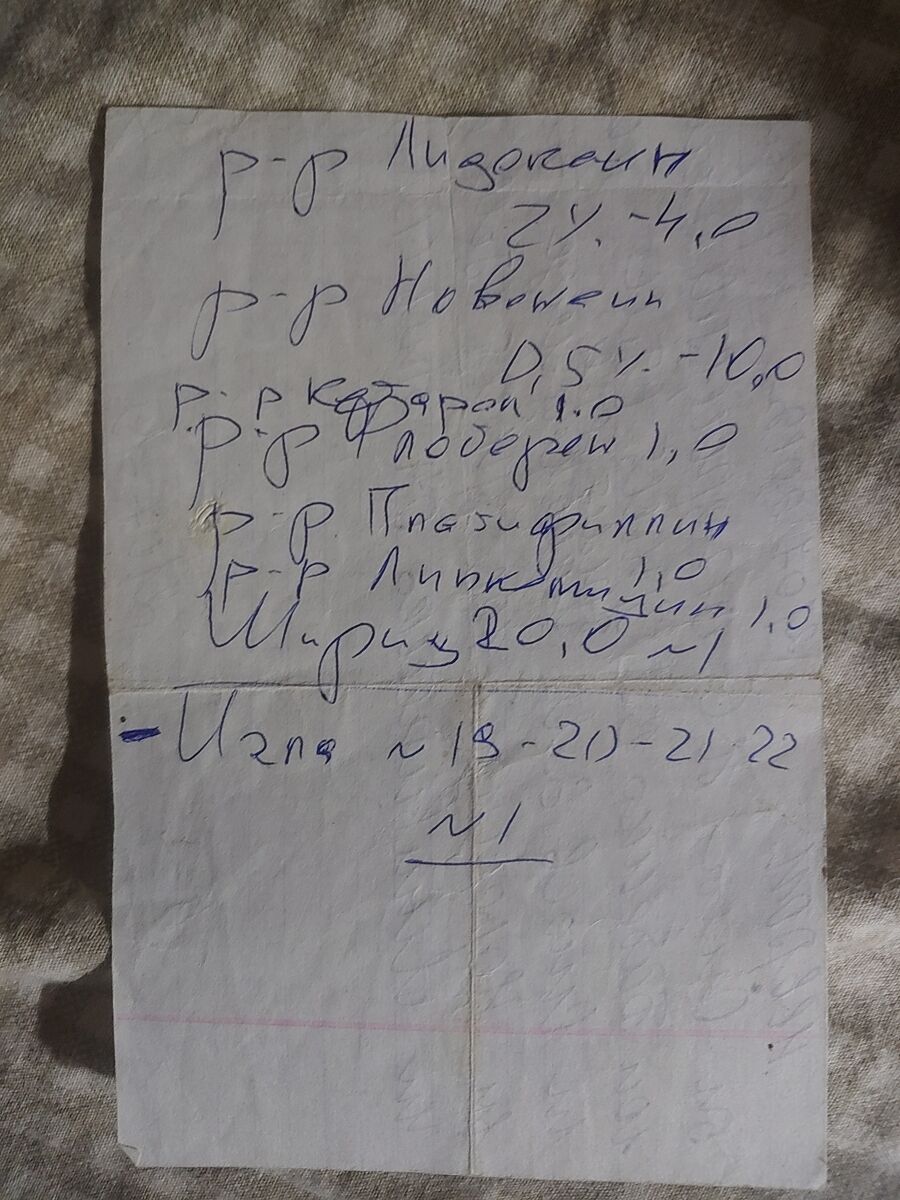 р-р Лидокаин
2% -4,0
р-р Новокаин
0,5% -10,0
р-р 1.0
р-р Флоберен 1,0
р-р Платифиллин
1,0
р-р Линкомицин 1,0
Шприц 20,0 №1
- Игла №19-20-21-22
№1